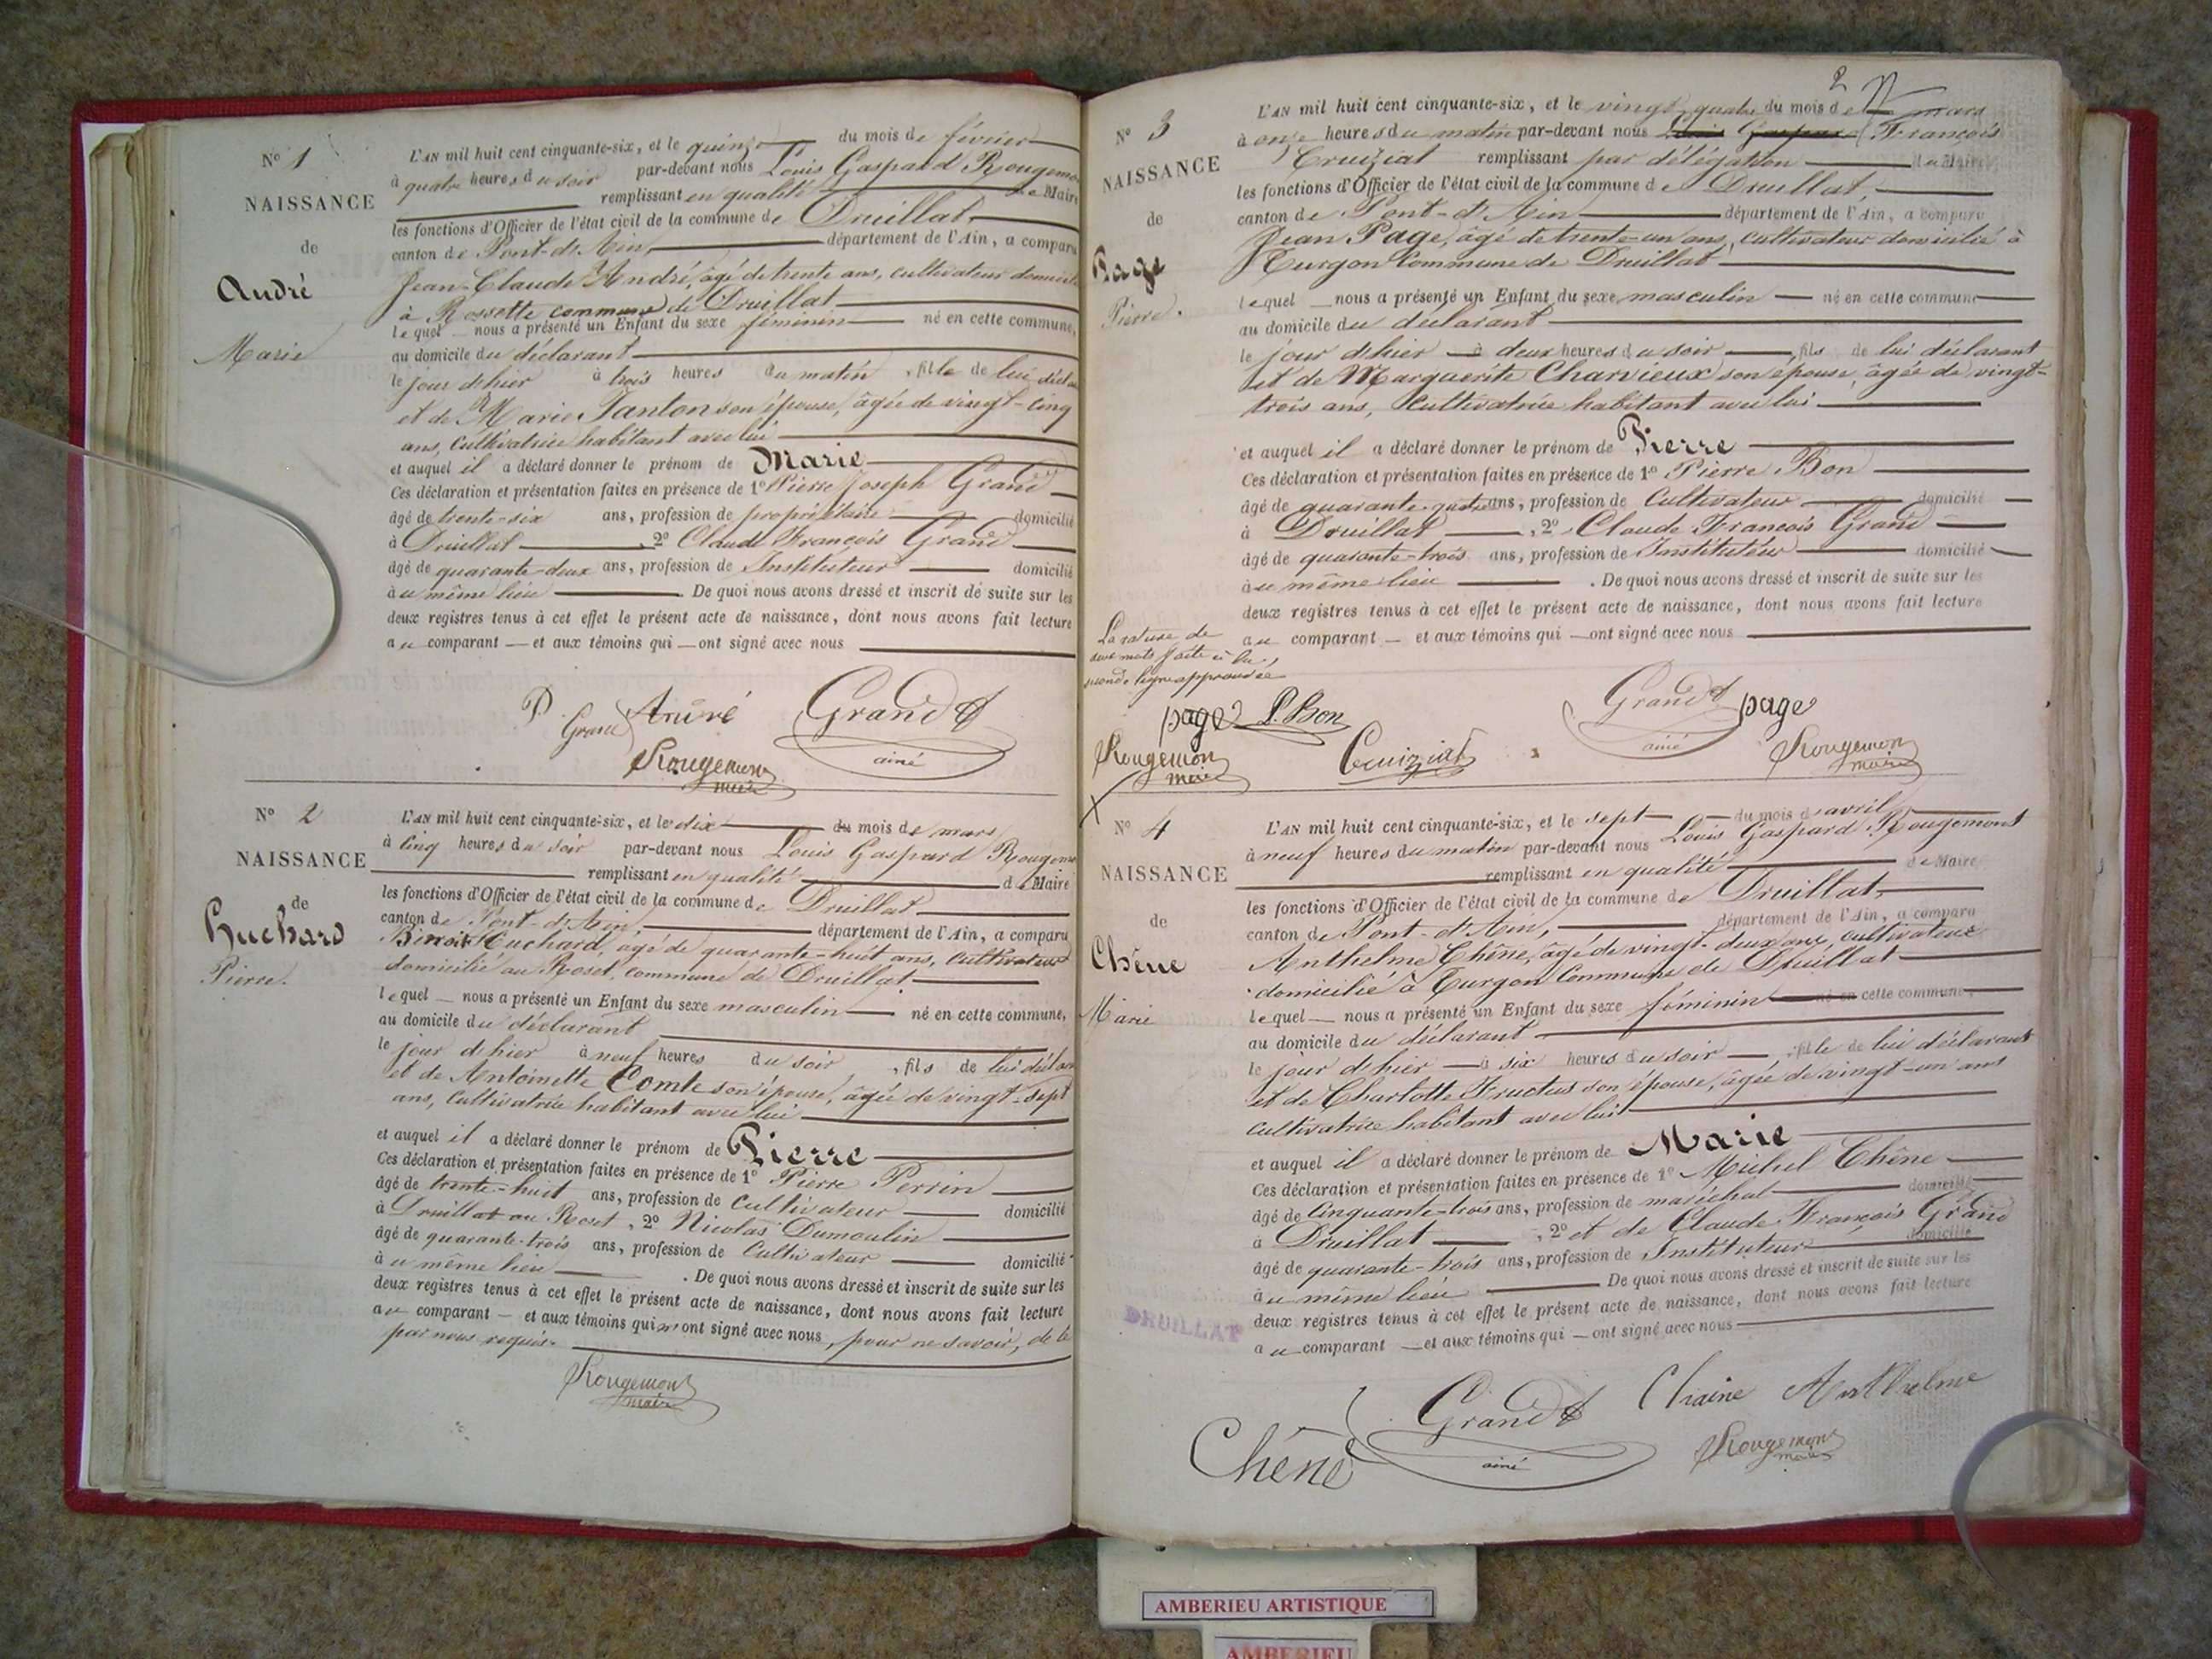 N° 1
NAISSANCE
de
André
Marie
L'AN mil huit cent cinquante-six, et le quinze du mois de février
à quatre heures du soir par-devant nous Louis Gaspard Rougemo
remplissant en qualité de Maire
les fonctions d'Officier de l'état civil de la commune de Druillat,
canton de Pont-d'Ain, département de l'Ain, a comparu
Jean-Claude André, âgé de trente ans, cultivateur domicilié
à Rossette commune de Druillat
lequel nous a présenté un Enfant du sexe féminin né en cette commune,
au domicile du déclarant
le jour d'hier à trois heures du matin, fille de lui décla
et de Marie Tanton son épouse, âgée de vingt-cinq
ans, cultivatrice habitant avec lui
et auquel il a déclaré donner le prénom de Marie
Ces déclaration et présentation faites en présence de 1° Pierre Joseph Grand
âgé de trente-six ans, profession de propriétaire domicilié
à Druillat, 2° Claude François Grand
âgé de quarante-deux ans, profession de Instituteur domicilié
à u même lieu. De quoi nous avons dressé et inscrit de suite sur les
deux registres tenus à cet effet le présent acte de naissance, dont nous avons fait lecture
au comparant et aux témoins qui ont signé avec nous
P. Grand André Grand
aîné
Rougemont
maire
N° 2
NAISSANCE
de
Huchard
Pierre.
L'AN mil huit cent cinquante-six, et le dix du mois de mars
à cinq heures du soir par-devant nous Louis Gaspard Rougemo
remplissant en qualité de Maire
les fonctions d'Officier de l'état civil de la commune de Druillat
canton de Pont-d'Ain, département de l'Ain, a comparu
Benoit Huchard, âgé de quarante-huit ans, cultivateur
domicilié au Roset, commune de Druillat
lequel nous a présenté un Enfant du sexe masculin né en cette commune,
au domicile du déclarant
le jour d'hier à neuf heures du soir, fils de lui déclar
et de Antoinette Comte son épouse, âgée de vingt-sept
ans, cultivatrice habitant avec lui
et auquel il a déclaré donner le prénom de Pierre
Ces déclaration et présentation faites en présence de 1° Pierre Perrin
âgé de trente-huit ans, profession de cultivateur domicilié
à Druillat au Roset, 2° Nicolas Dumoulin
âgé de quarante-trois ans, profession de Cultivateur domicilié
à u même lieu. De quoi nous avons dressé et inscrit de suite sur les
deux registres tenus à cet effet le présent acte de naissance, dont nous avons fait lecture
au comparant et aux témoins qui n'ont signé avec nous, pour ne savoir, de ce
par nous requis.
Rougemont
maire
2
N° 3
NAISSANCE
de
Page
Pierre.
L'AN mil huit cent cinquante-six, et le vingt-quatre du mois de mars
à onze heures du matin par-devant nous Louis Gaspard François
Cruiziat remplissant par délégation de Maire
les fonctions d'Officier de l'état civil de la commune de Druillat,
canton de Pont-d'Ain département de l'Ain, a comparu
Jean Page, âgé de trente-un ans, cultivateur domicilié à
Turgon Commune de Druillat
lequel nous a présenté un Enfant du sexe masculin né en cette commune
au domicile du déclarant
le jour d'hier à deux heures du soir, fils de lui déclarant
et de Marguerite Charvieux son épouse, âgée de vingt-
trois ans, Cultivatrice habitant avec lui
et auquel il a déclaré donner le prénom de Pierre
Ces déclaration et présentation faites en présence de 1° Pierre Bon
âgé de quarante-quatre ans, profession de Cultivateur domicilié
à Druillat, 2° Claude François Grand
âgé de quarante-trois ans, profession de Instituteur domicilié
à u même lieu. De quoi nous avons dressé et inscrit de suite sur les
deux registres tenus à cet effet le présent acte de naissance, dont nous avons fait lecture
au comparant et aux témoins qui ont signé avec nous
La rature de
deux mots faite à la
seconde ligne approuvée
page P. Bon Grand page
aîné
Rougemont Cruiziat Rougemont
maire maire
N° 4
NAISSANCE
de
Chêne
Marie
L'AN mil huit cent cinquante-six, et le sept du mois d'avril
à neuf heures du matin par-devant nous Louis Gaspard Rougemont
remplissant en qualité de Maire
les fonctions d'Officier de l'état civil de la commune de Druillat,
canton de Pont-d'Ain, département de l'Ain, a comparu
Anthelme Chêne, âgé de vingt-deux ans, cultivateur
domicilié à Turgon Commune de Druillat
lequel nous a présenté un Enfant du sexe féminin né en cette commune,
au domicile du déclarant
le jour d'hier à six heures du soir, fille de lui déclarant
et de Charlotte Fructus son épouse, âgée de vingt-un ans
cultivatrice habitant avec lui
et auquel il a déclaré donner le prénom de Marie
Ces déclaration et présentation faites en présence de 1° Michel Chêne
âgé de Cinquante-trois ans, profession de maréchal domicilié
à Druillat, 2° et de Claude François Grand
âgé de quarante-trois ans, profession de Instituteur domicilié
à u même lieu De quoi nous avons dressé et inscrit de suite sur les
deux registres tenus à cet effet le présent acte de naissance, dont nous avons fait lecture
au comparant et aux témoins qui ont signé avec nous
DRUILLAT
Grand Chaine Anthelme
Chêne aîné Rougemont
maire
AMBERIEU ARTISTIQUE
AMBERIEU